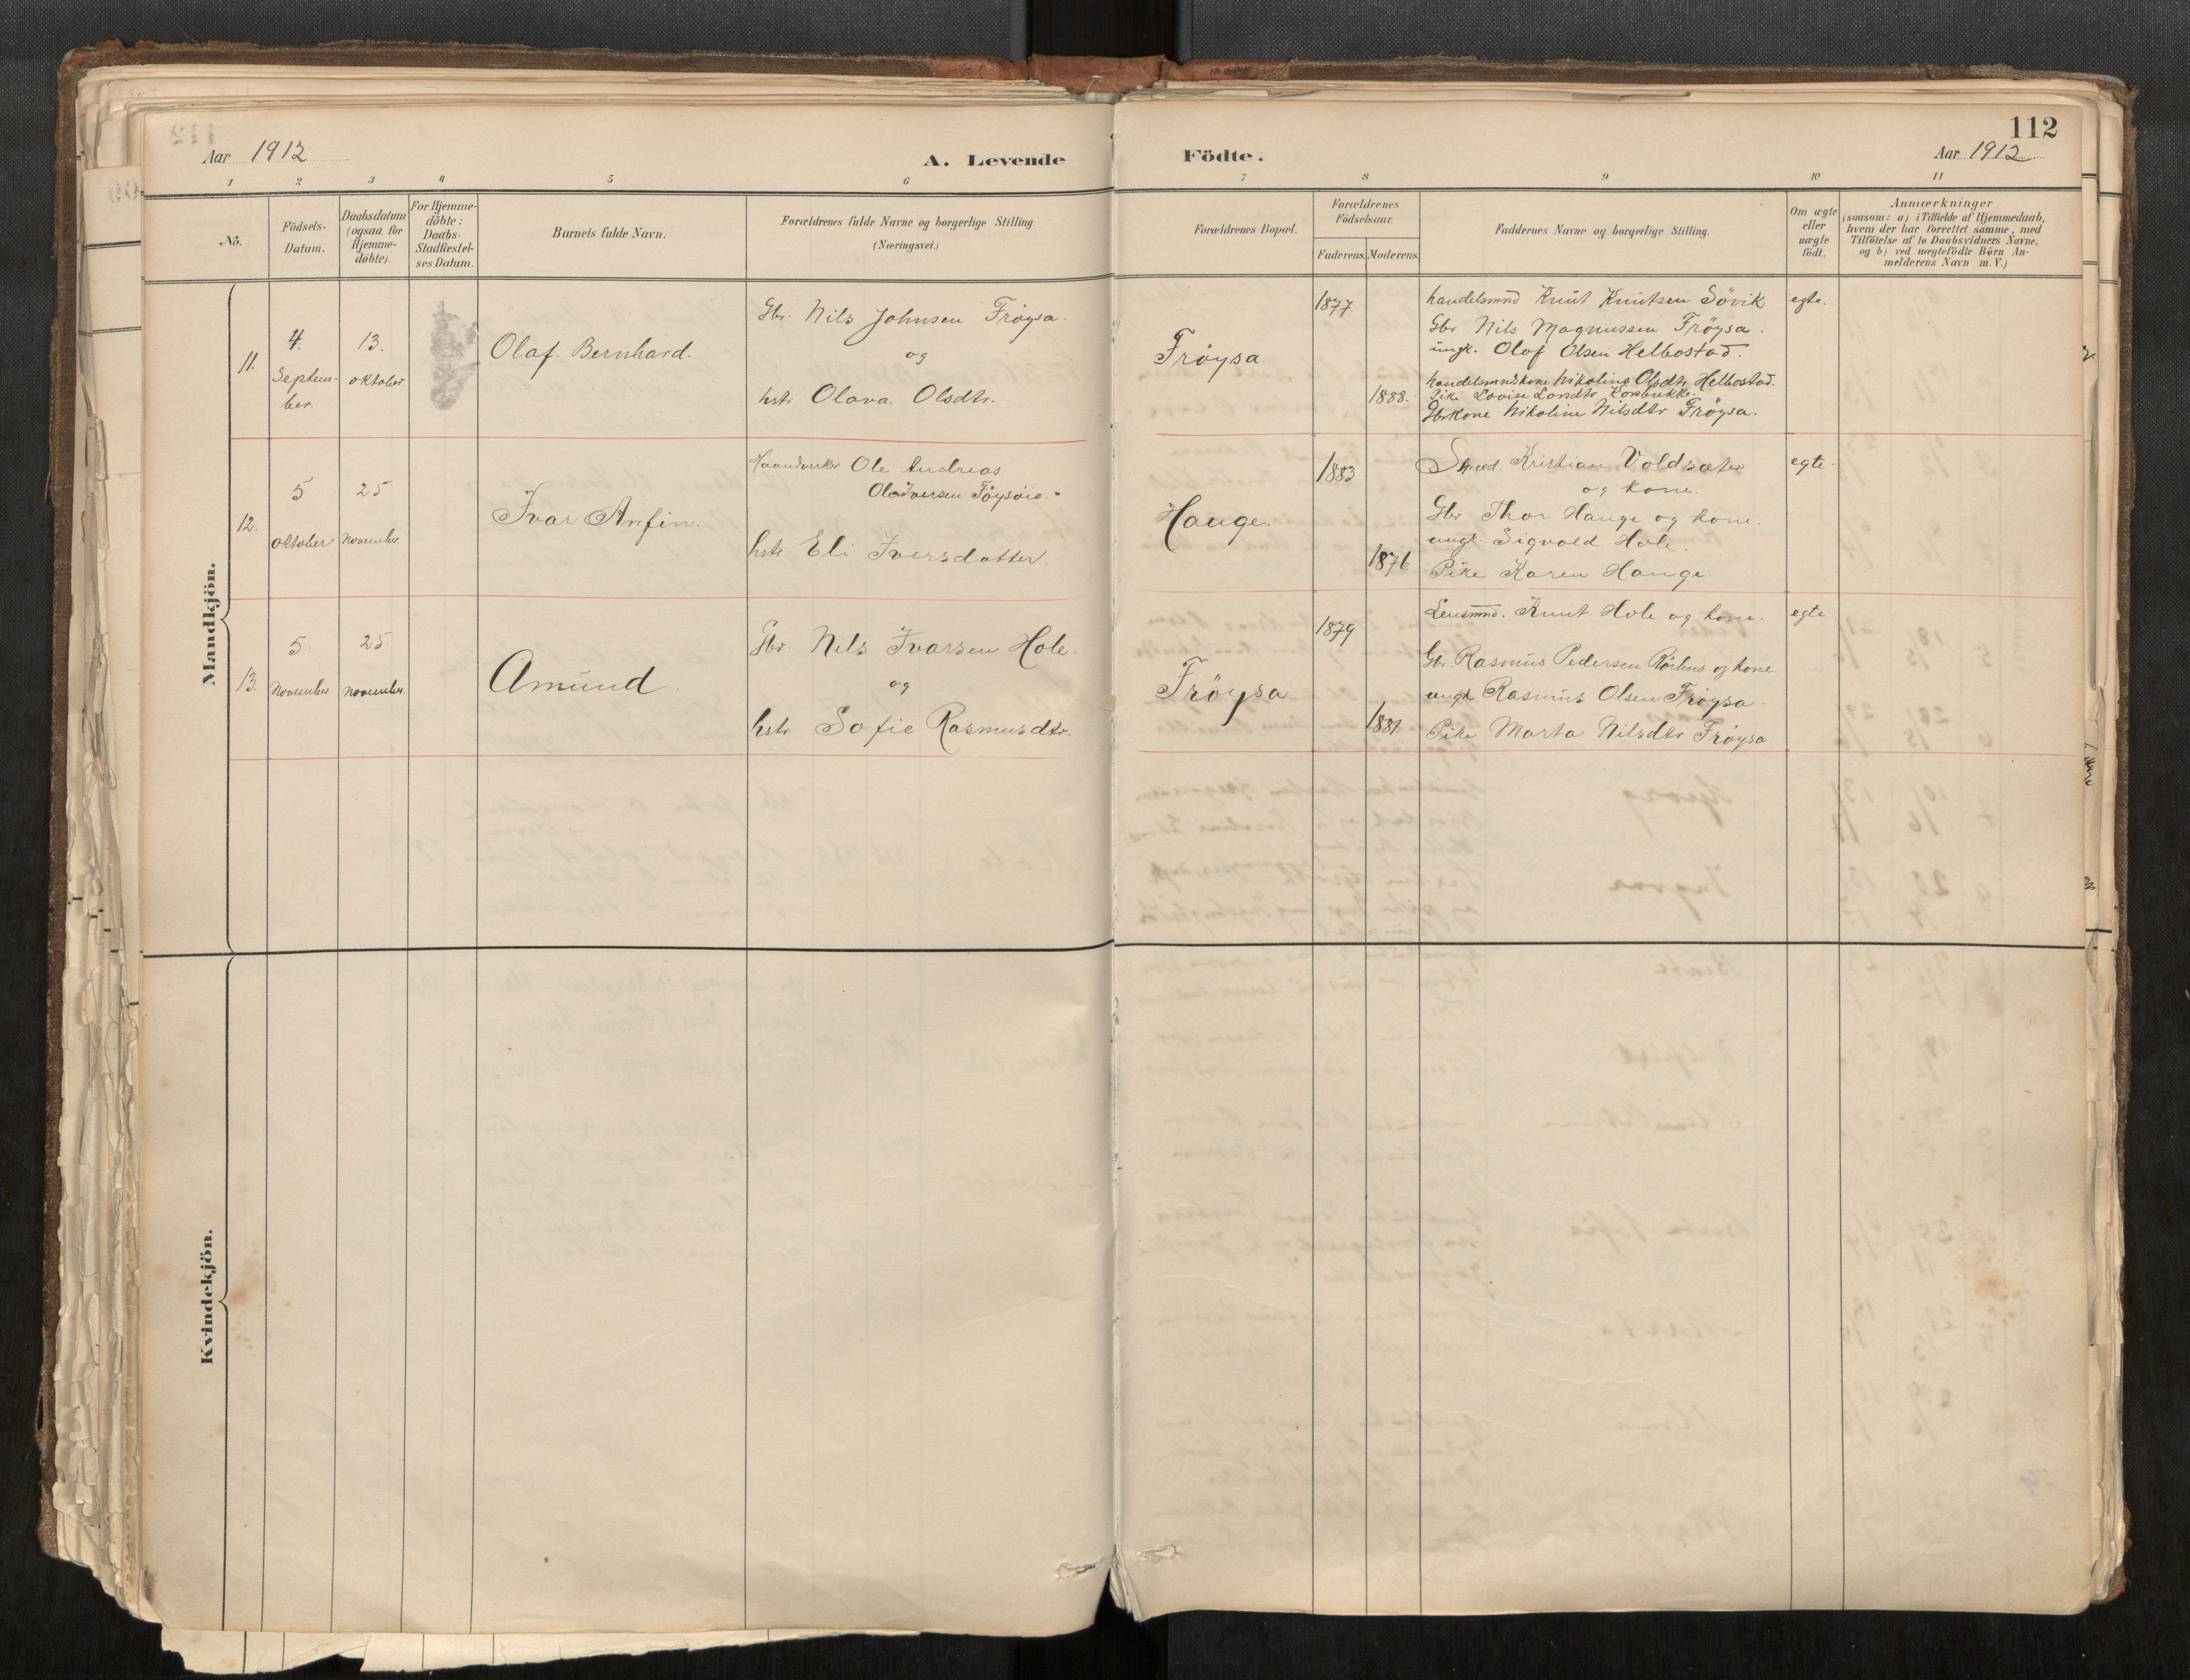 112
Aar 1912
A. Levende Födte.
Aar 1912
1 2 3 4 5 6 7 8 9 10 11
No.
Födsels-
Datum.
Daabsdatum
(ogsaa for
Hjemme-
döbte).
For Hjemme-
döbte:
Daabs-
Stadfæstel-
ses Datum.
Barnets fulde Navn.
Forældrenes fulde Navne og borgerlige Stilling
(Næringsvei.)
Forældrenes Bopæl.
Forældrenes
Födselsaar.
Faderens. Moderens.
Faddernes Navne og borgerlige Stilling.
Om ægte
eller
uægte
födt.
Anmærkninger
(saasom: a) i Tilfælde af Hjemmedaab,
hvem der har forrettet samme, med
Tilföielse af to Daabsvidners Navne,
og b) ved uægtefödte Börn An-
melderens Navn m. V.)
Mandkjön.
11.
4.
Septem-
ber.
13.
oktober
Olaf Bernhard.
Gbr. Nils Johnsen Fröysa.
og
hstr Olava Olsdtr.
Fröysa
1877
1888.
handelsmnd Knut Knutsen Sövik
Gbr Nils Magnussen Fröysa.
ungk. Olaf Olsen Helbostad.
handelsmndskone Nikoline Olsdtr Helbostad.
Pike Lovise
Gbrkone Nikoline Nilsdtr Fröysa.
egte.
12.
5
oktober
25
November.
Ivar Anfin.
Haandverker Ole Andreas
Iversen
hstr Eli Iversdatter.
Hauge.
1883
1876
Kristian Voldsæter
og kone.
Gbr Thor Hauge og kone.
ungk. Sigvald Hole.
Pike Karen Hauge.
egte.
13.
5.
November
25
November.
Amund.
Gbr. Nils Ivarsen Hole.
og
hstr Sofie Rasmusdtr.
Fröysa
1879
1881.
Lensmnd. Knut Hole og kone.
Gbr. Rasmus Pedersen og kone
ungk Rasmus Olsen Fröysa.
Pike Marta Nilsdtr Fröysa
egte
Kvindekjön.